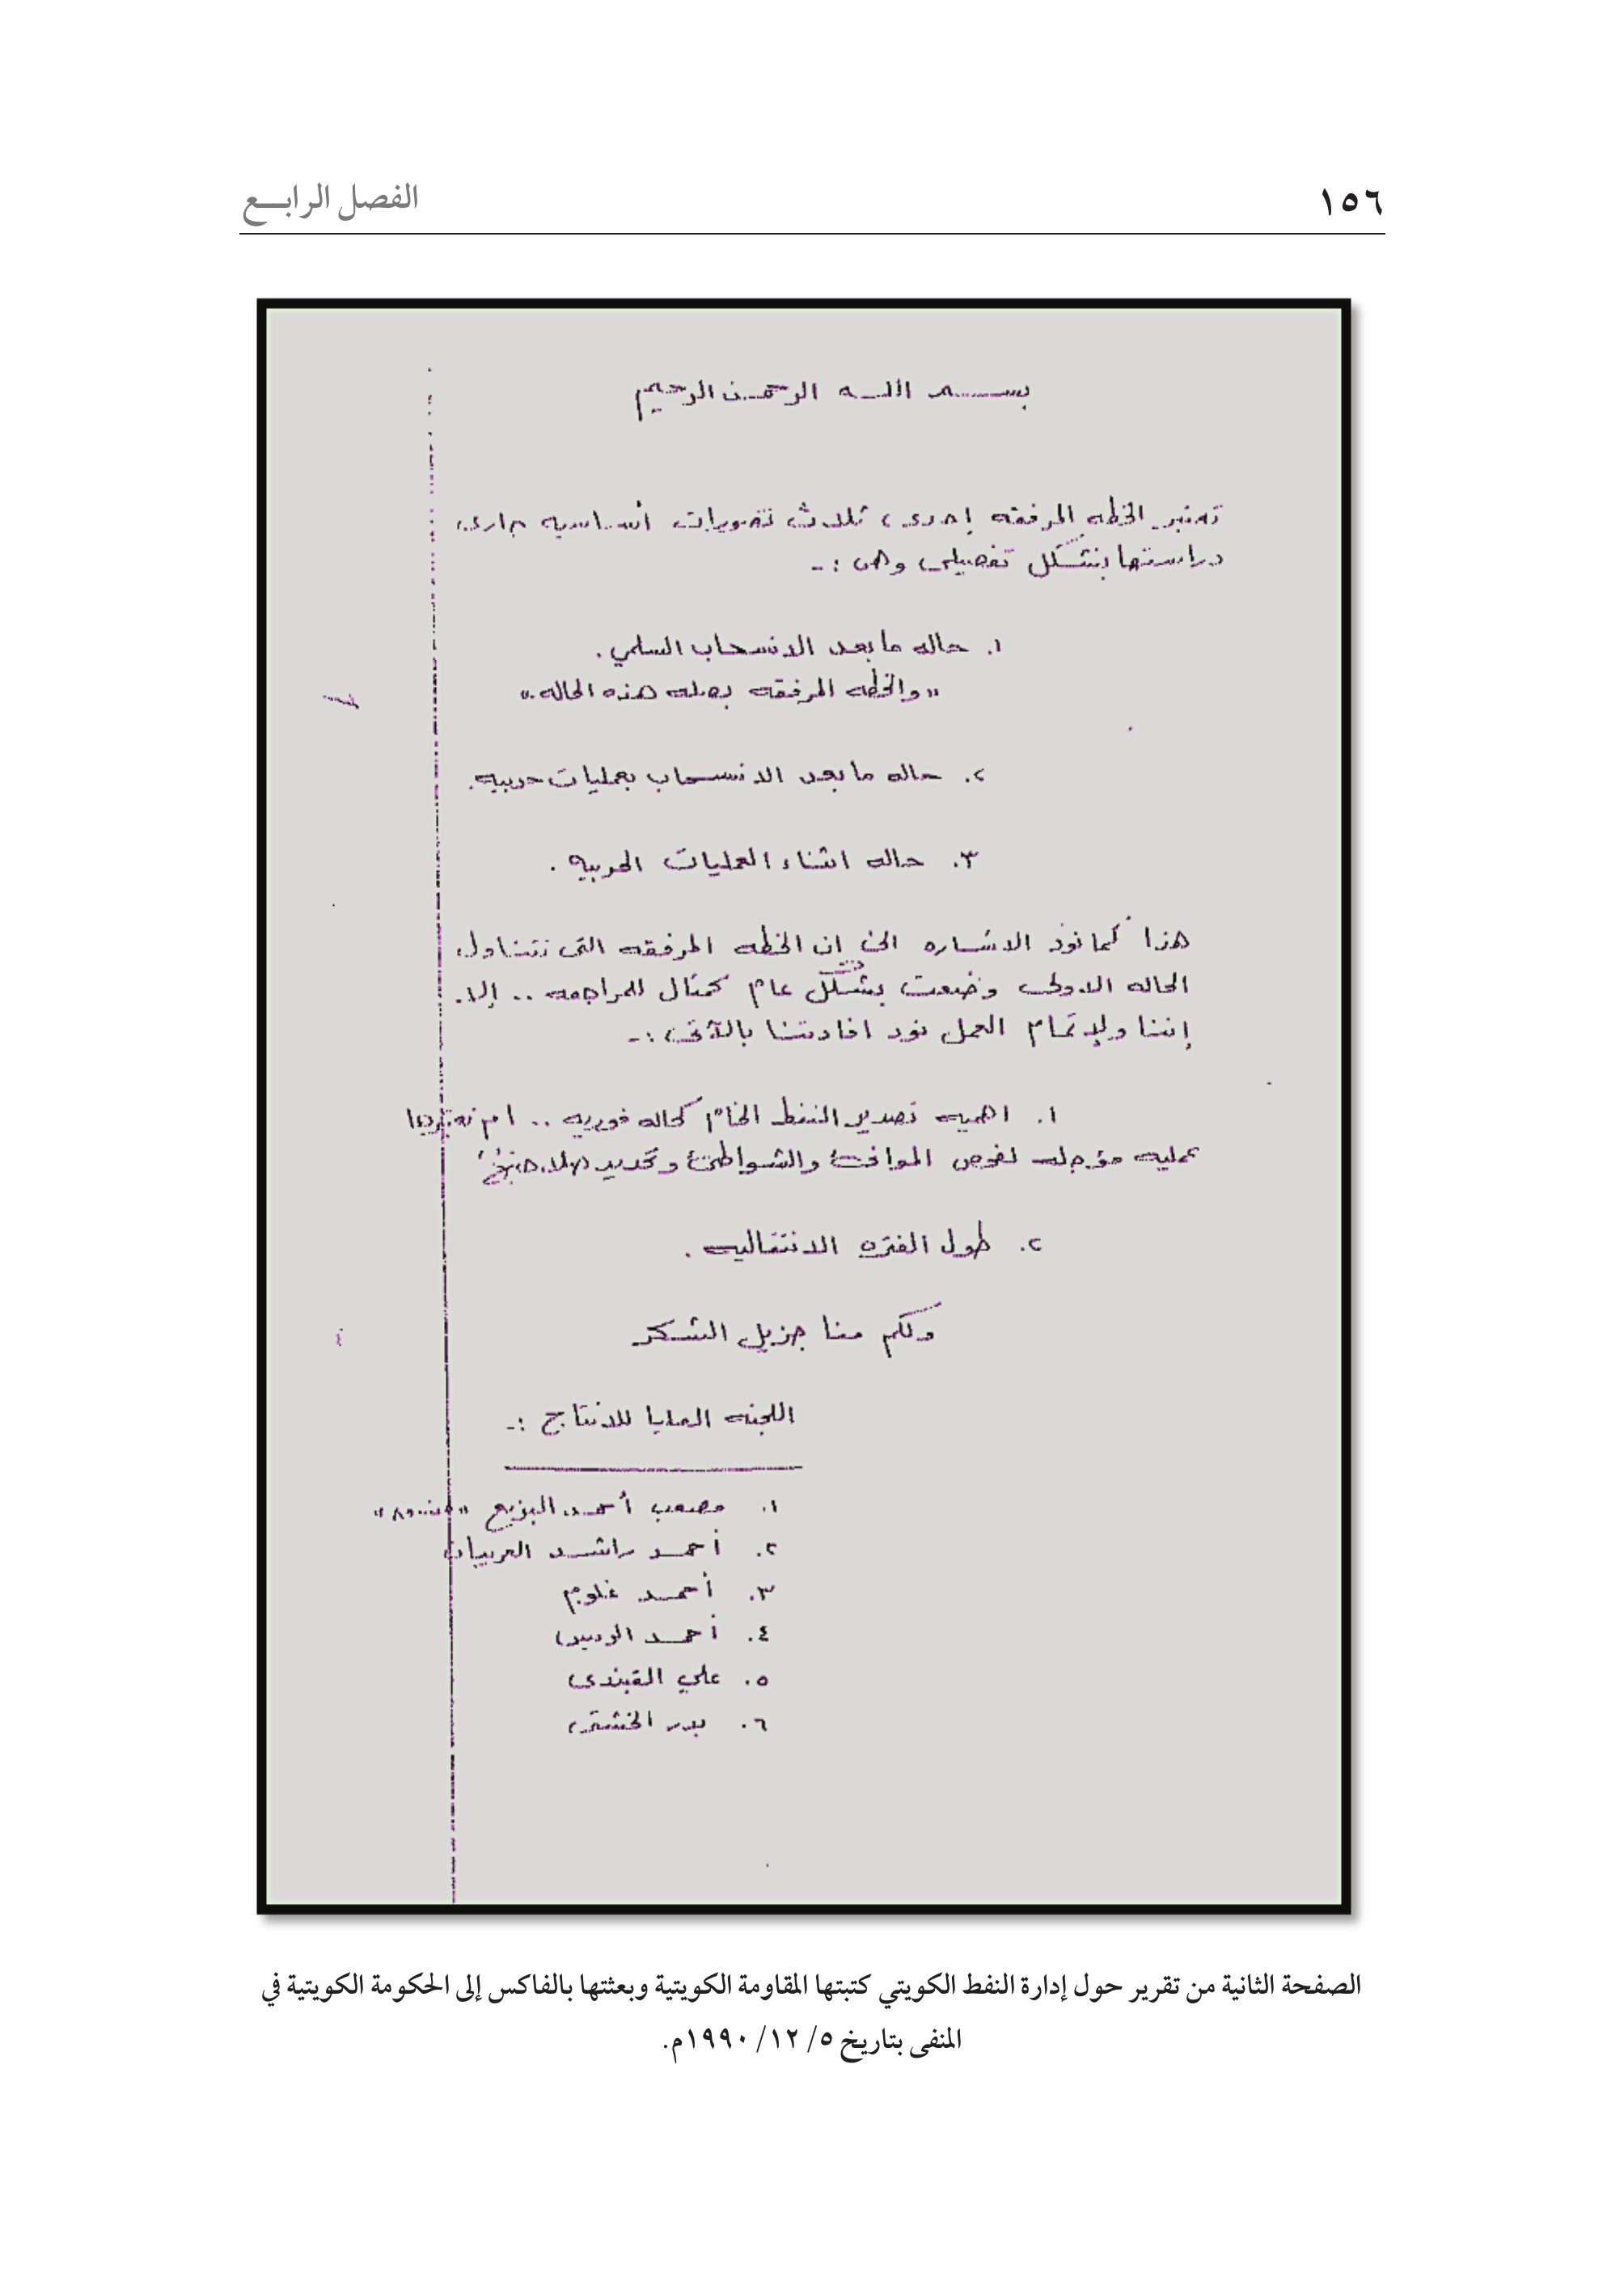 ١٥٦
الفصل الرابـــع
بســـم اللـه الرحمـن الرحيم
تعتبر الخطه المرفقه إحدى ثلاث تصورات أساسيه جارى
دراستها بشكل تفصيلى وهى :-
١. حاله مابعد الانسحاب السلمي .
"والخطه المرفقه بصله هذه الحاله"
٢. حاله مابعد الانسحاب بعمليات حربيه.
٣. حاله اثناء العمليات الحربيه .
هذا كما نود الاشاره الى ان الخطه المرفقه التى تتناول
الحاله الاولى وضعت بشكل عام كمثال للمراجعه .. إلا.
إننا ولإتمام العمل نود افادتنا بالآتى :-
١. اهميه تصدير النفط الخام كحاله فوريه .. ام نعتبرها
عمليه مؤجله لفحص الموانئ والشواطئ وتحديد
٢. طول الفتره الانتقاليه .
ولكم منا جزيل الشكر
اللجنه العليا للانتاج :-
١. مصعب أحمد البزيع
٢. أحمد راشد العربيات
٣. أحمد غلوم
٤. أحمد
٥. علي القبندى
٦. بدر الخشتى
الصفحة الثانية من تقرير حول إدارة النفط الكويتي كتبتها المقاومة الكويتية وبعثتها بالفاكس إلى الحكومة الكويتية في
المنفى بتاريخ ٥/ ١٢/ ١٩٩٠م.